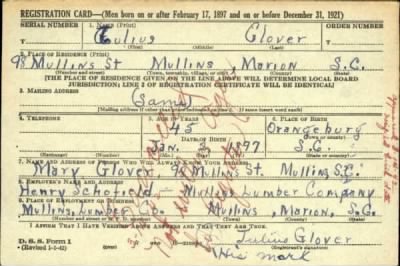 REGISTRATION CARD—(Men born on or after February 17, 1897 and on or before December 31, 1921)
SERIAL NUMBER 1. NAME (Print) ORDER NUMBER
Julius Glover
(First) (Middle) (Last)
2. PLACE OF RESIDENCE (Print)
98 Mullins St Mullins, Marion S.C.
(Number and street) (Town, township, village, or city) (County) (State)
[THE PLACE OF RESIDENCE GIVEN ON THE LINE ABOVE WILL DETERMINE LOCAL BOARD
JURISDICTION; LINE 2 OF REGISTRATION CERTIFICATE WILL BE IDENTICAL]
3. MAILING ADDRESS
Same
[Mailing address if other than place indicated on line 2. If same insert word same]
4. TELEPHONE 5. AGE IN YEARS 6. PLACE OF BIRTH
45 Orangeburg
DATE OF BIRTH (Town or county)
Jan. 3 1897 S.C.
(Exchange) (Number) (Mo.) (Day) (Yr.) (State or country)
7. NAME AND ADDRESS OF PERSON WHO WILL ALWAYS KNOW YOUR ADDRESS
Mary Glover 98 Mullins St. Mullins S.C.
8. EMPLOYER'S NAME AND ADDRESS
Henry Schofield Mullins Lumber Company
9. PLACE OF EMPLOYMENT OR BUSINESS
Mullins Lumber Co. Mullins, Marion, S.C.
(Number and street or R. F. D. number) (Town) (County) (State)
I AFFIRM THAT I HAVE VERIFIED ABOVE ANSWERS AND THAT THEY ARE TRUE.
D. S. S. Form 1 Julius Glover
(Revised 1-1-42) (over) His mark